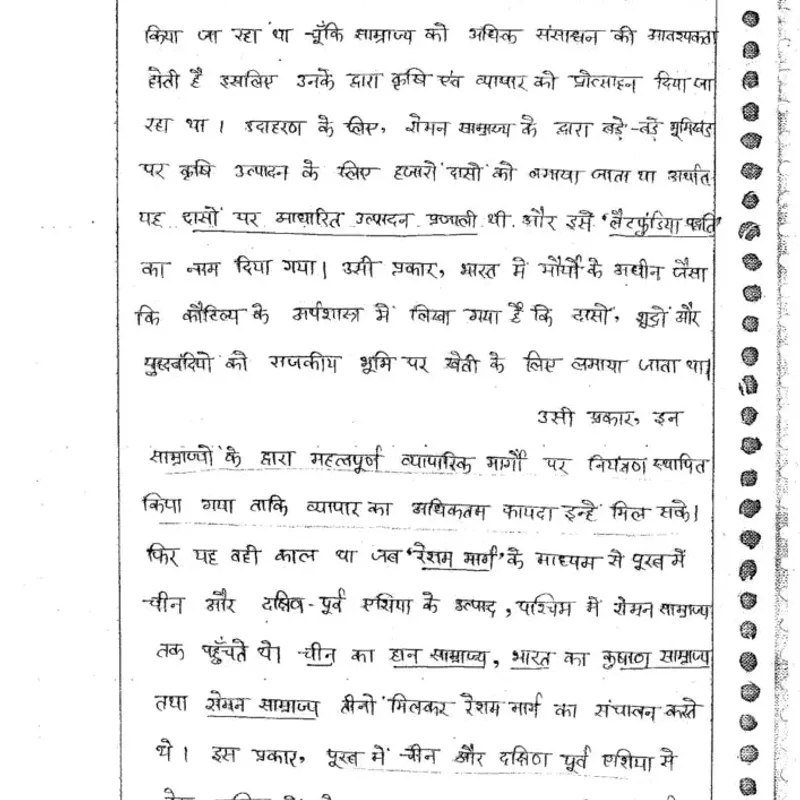 किया जा रहा था चूँकि साम्राज्य को अधिक संसाधन की आवश्यकता
होती है इसलिए उनके द्वारा कृषि एवं व्यापार को प्रोत्साहन दिया जा
रहा था। उदाहरण के लिए, रोमन साम्राज्य के द्वारा बड़े-बड़े भूमिखंड
पर कृषि उत्पादन के लिए हजारों दासों को लगाया जाता था अर्थात
यह दासों पर आधारित उत्पादन प्रणाली थी और इसे 'लैटफुंडिया पद्धति'
का नाम दिया गया। उसी प्रकार, भारत में मौर्यों के अधीन जैसा
कि कौटिल्य के अर्थशास्त्र में लिखा गया है कि दासों, शूद्रों और
युद्धबंदियों को राजकीय भूमि पर खेती के लिए लगाया जाता था।
उसी प्रकार, इन
साम्राज्यों के द्वारा महत्वपूर्ण व्यापारिक मार्गों पर नियंत्रण स्थापित
किया गया ताकि व्यापार का अधिकतम फायदा इन्हें मिल सके।
फिर यह वही काल था जब 'रेशम मार्ग' के माध्यम से पूरब में
चीन और दक्षिण-पूर्व एशिया के उत्पाद, पश्चिम में रोमन साम्राज्य
तक पहुँचते थे। चीन का हान साम्राज्य, भारत का कुषाण साम्राज्य
तथा रोमन साम्राज्य तीनों मिलकर रेशम मार्ग का संचालन करते
थे। इस प्रकार, पूरब में चीन और दक्षिण पूर्व एशिया से